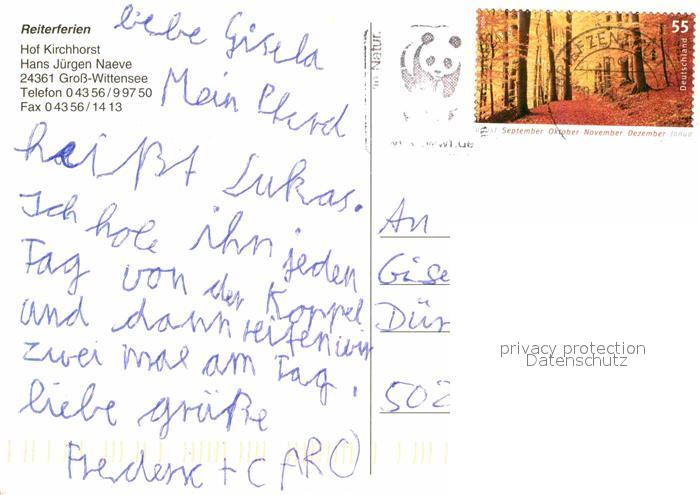 Reiterferien
Hof Kirchhorst
Hans Jürgen Naeve
24361 Groß-Wittensee
Telefon 0 43 56 / 9 97 50
Fax 0 43 56 / 14 13
liebe Gisela
Mein Pferd
heißt Lukas.
Ich hole ihn jeden
Tag von der Koppel
und dann reiten wir
zwei mal am Tag.
liebe grüße
Frederic + CARO
in Natur.
55
Deutschland
September Oktober November Dezember Janua
An
Gise
Dür
502
privacy protection
Datenschutz